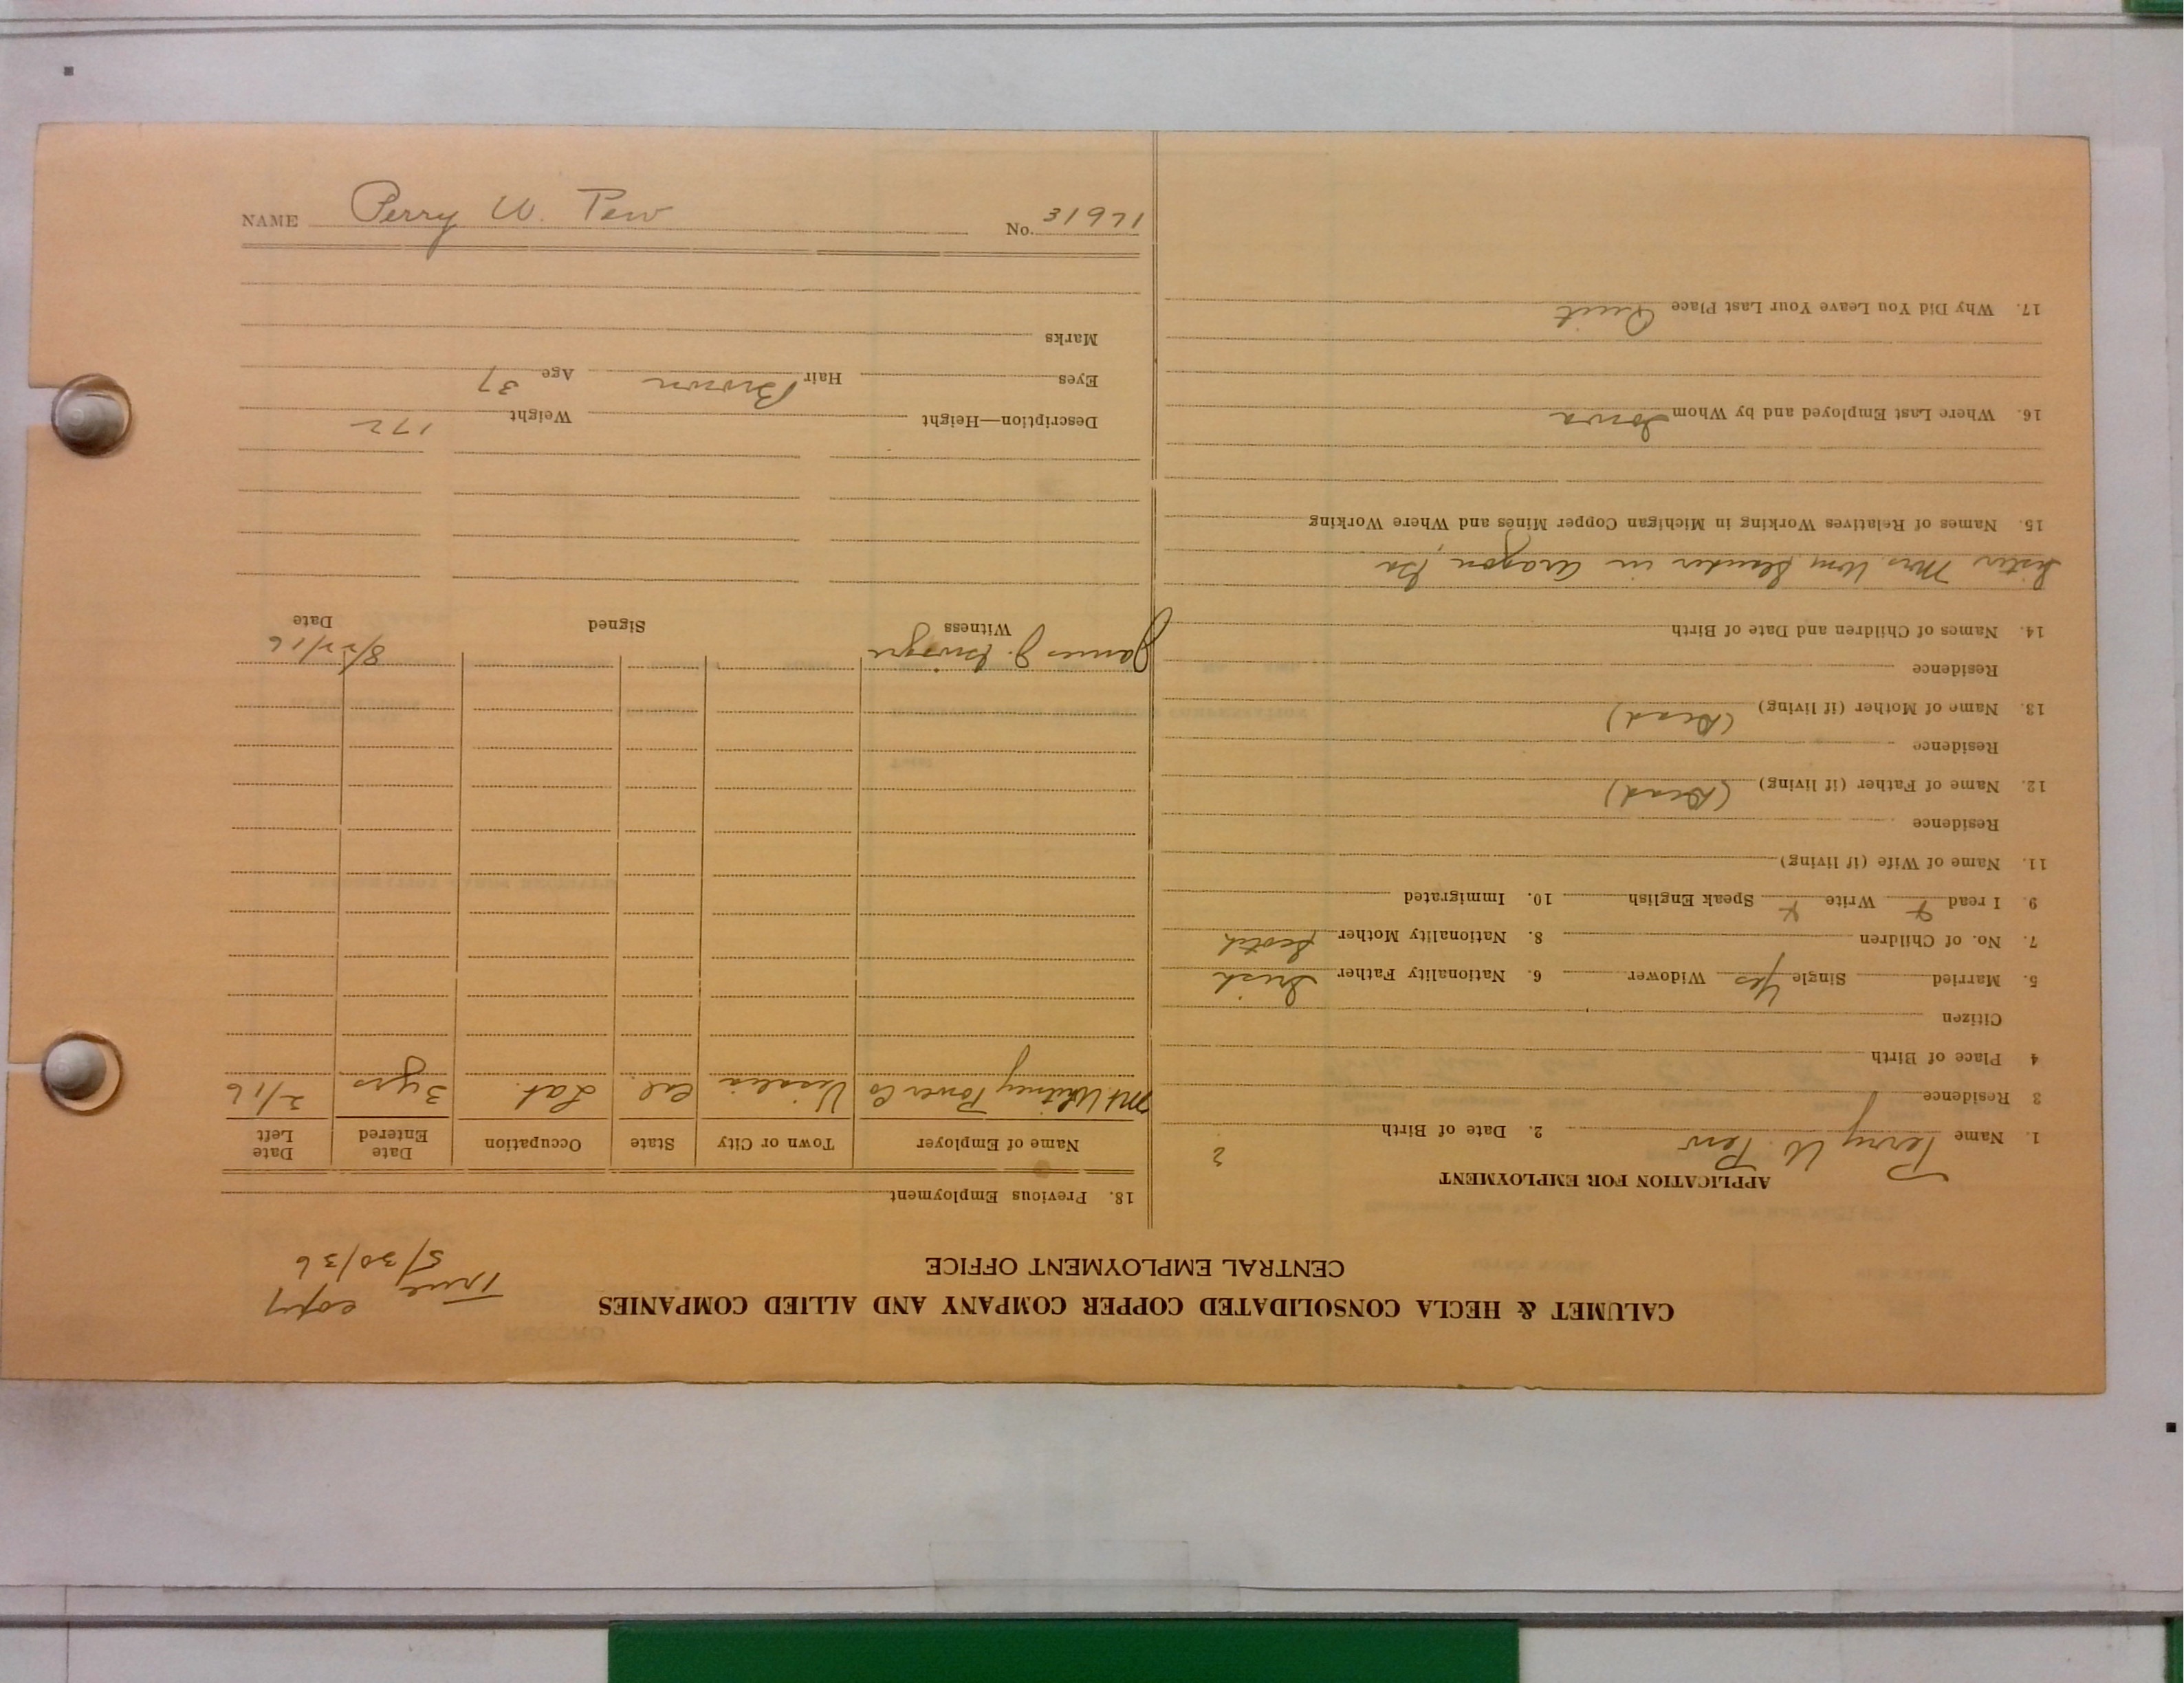 NAME Perry W. Pew No. 31971
CALUMET & HECLA CONSOLIDATED COPPER COMPANY AND ALLIED COMPANIES
CENTRAL EMPLOYMENT OFFICE
True copy
5/30/36
APPLICATION FOR EMPLOYMENT
1. Name Perry W. Pew 2. Date of Birth ?
3 Residence
4 Place of Birth
Citizen
5. Married Single Yes Widower 6. Nationality Father Irish
7. No. of Children 8. Nationality Mother Scotch
9. I read x Write x Speak English 10. Immigrated
11. Name of Wife (if living)
Residence
12. Name of Father (if living) (Dead)
Residence
13. Name of Mother (if living) (Dead)
Residence
14. Names of Children and Date of Birth
Sister Mrs. Wm in Aragon, Ga
15. Names of Relatives Working in Michigan Copper Mines and Where Working
16. Where Last Employed and by Whom Iowa
17. Why Did You Leave Your Last Place Quit
18. Previous Employment
Name of Employer Town or City State Occupation Date Entered Date Left
Mt Whitney Power Co Visalia Cal. Lab. 3 yrs 2/16
James J. 8/22/16
Witness Signed Date
Description—Height Weight 172
Eyes Hair Brown Age 37
Marks